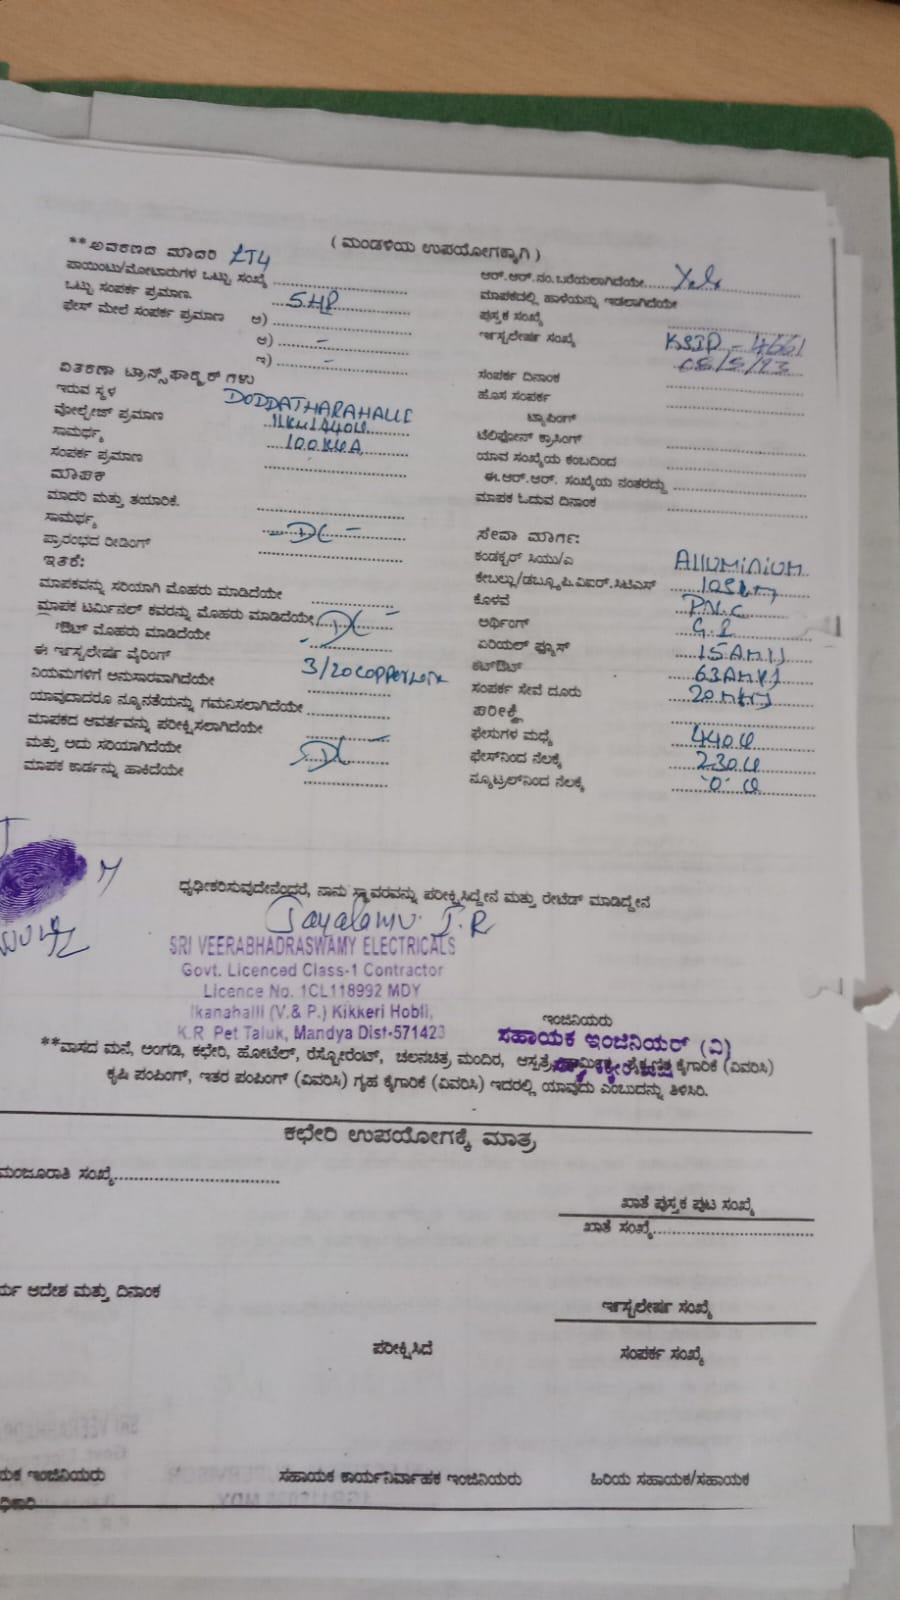 ( ಮಂಡಳಿಯ ಉಪಯೋಗಕ್ಕಾಗಿ )
**ಅವಕಣದ ಮಾದರಿ LT4
ಪಾಯಿಂಟು/ಮೋಟಾರುಗಳ ಒಟ್ಟು ಸಂಖ್ಯೆ
ಒಟ್ಟು ಸಂಪರ್ಕ ಪ್ರಮಾಣ. 5HP
ಫೇಸ್ ಮೇಲೆ ಸಂಪರ್ಕ ಪ್ರಮಾಣ ಅ)
ಆ) –
ಇ) –
ವಿತಕಣಾ ಟ್ರಾನ್ಸ್‌ಫಾರ್ಮ್ಗಳು
ಇರುವ ಸ್ಥಳ DODDATHARAHALLI
ವೋಲ್ಟೇಜ್ ಪ್ರಮಾಣ
ಸಾಮರ್ಥ್ಯ 100KVA
ಸಂಪರ್ಕ ಪ್ರಮಾಣ
ಮಾಪಕ
ಮಾದರಿ ಮತ್ತು ತಯಾರಿಕೆ.
ಸಾಮರ್ಥ್ಯ DC –
ಪ್ರಾರಂಭದ ರೀಡಿಂಗ್
ಇತರೆ:
ಮಾಪಕವನ್ನು ಸರಿಯಾಗಿ ಮೊಹರು ಮಾಡಿದೆಯೇ
ಮಾಪಕ ಟರ್ಮಿನಲ್ ಕವರನ್ನು ಮೊಹರು ಮಾಡಿದೆಯೇ DC
ಔಟ್ ಮೊಹರು ಮಾಡಿದೆಯೇ
ಈ ವೈರಿಂಗ್ 3/20 copper
ನಿಯಮಗಳಿಗೆ ಅನುಸಾರವಾಗಿದೆಯೇ
ಯಾವುದಾದರೂ ನ್ಯೂನತೆಯನ್ನು ಗಮನಿಸಲಾಗಿದೆಯೇ
ಮಾಪಕದ ಆವರ್ತವನ್ನು ಪರೀಕ್ಷಿಸಲಾಗಿದೆಯೇ
ಮತ್ತು ಅದು ಸರಿಯಾಗಿದೆಯೇ DC
ಮಾಪಕ ಕಾರ್ಡನ್ನು ಹಾಕಿದೆಯೇ
ಆರ್.ಆರ್.ನಂ.ಬರೆಯಲಾಗಿದೆಯೇ
ಮಾಪಕದಲ್ಲಿ ಹಾಳೆಯನ್ನು ಇಡಲಾಗಿದೆಯೇ
ಪುಸ್ತಕ ಸಂಖ್ಯೆ
ಸಂಖ್ಯೆ KSIP – 4661
ಸಂಪರ್ಕ ದಿನಾಂಕ
ಹೊಸ ಸಂಪರ್ಕ
ಟ್ಯಾಪಿಂಗ್
ಟೆಲಿಫೋನ್ ಕ್ರಾಸಿಂಗ್
ಯಾವ ಸಂಖ್ಯೆಯ ಕಂಬದಿಂದ
ಈ.ಆರ್.ಆರ್. ಸಂಖ್ಯೆಯ ನಂತರದ್ದು
ಮಾಪಕ ಓದುವ ದಿನಾಂಕ
ಸೇವಾ ಮಾರ್ಗ:
ಕಂಡಕ್ಟರ್ ಸಿಯು/ಎ ALLUMINIUM
ಕೇಬಲ್ಲು/ಡಬ್ಲ್ಯೂ.ಪಿ.ವಿಐಆರ್.ಸಿಟಿಎಸ್
ಕೊಳವೆ P.V.C
ಅರ್ಥಿಂಗ್ G.I
ಏರಿಯಲ್ ಫ್ಯೂಸ್
ಕಟ್‌ಔಟ್
ಸಂಪರ್ಕ ಸೇವೆ ದೂರು
ಪರೀಕ್ಷೆ
ಫೇಸುಗಳ ಮಧ್ಯೆ 440V
ಫೇಸ್‌ನಿಂದ ನೆಲಕ್ಕೆ 230V
ನ್ಯೂಟ್ರಲ್‌ನಿಂದ ನೆಲಕ್ಕೆ '0' V
ಧೃಢೀಕರಿಸುವುದೇನೆಂದರೆ, ನಾನು ಸ್ಥಾವರವನ್ನು ಪರೀಕ್ಷಿಸಿದ್ದೇನೆ ಮತ್ತು ರೇಟೆಡ್ ಮಾಡಿದ್ದೇನೆ
SRI VEERABHADRASWAMY ELECTRICALS
Govt. Licenced Class-1 Contractor
Licence No. 1CL118992 MDY
Ikanahalli (V.& P.) Kikkeri Hobli,
K.R. Pet Taluk, Mandya Dist-571423
ಇಂಜಿನಿಯರು
ಸಹಾಯಕ ಇಂಜಿನಿಯರ್ (ವಿ)
**ವಾಸದ ಮನೆ, ಅಂಗಡಿ, ಕಛೇರಿ, ಹೋಟೆಲ್, ರೆಸ್ಟೋರೆಂಟ್, ಚಲನಚಿತ್ರ ಮಂದಿರ, ಆಸ್ಪತ್ರೆ, ಕೈಗಾರಿಕೆ (ವಿವರಿಸಿ)
ಕೃಷಿ ಪಂಪಿಂಗ್, ಇತರ ಪಂಪಿಂಗ್ (ವಿವರಿಸಿ) ಗೃಹ ಕೈಗಾರಿಕೆ (ವಿವರಿಸಿ) ಇದರಲ್ಲಿ ಯಾವುದು ಎಂಬುದನ್ನು ತಿಳಿಸಿರಿ.
ಕಛೇರಿ ಉಪಯೋಗಕ್ಕೆ ಮಾತ್ರ
ಮಂಜೂರಾತಿ ಸಂಖ್ಯೆ
ಖಾತೆ ಪುಸ್ತಕ ಪುಟ ಸಂಖ್ಯೆ
ಖಾತೆ ಸಂಖ್ಯೆ
ಆದೇಶ ಮತ್ತು ದಿನಾಂಕ
ಸಂಖ್ಯೆ
ಪರೀಕ್ಷಿಸಿದೆ
ಸಂಪರ್ಕ ಸಂಖ್ಯೆ
ಇಂಜಿನಿಯರು
ಸಹಾಯಕ ಕಾರ್ಯನಿರ್ವಾಹಕ ಇಂಜಿನಿಯರು
ಹಿರಿಯ ಸಹಾಯಕ/ಸಹಾಯಕ